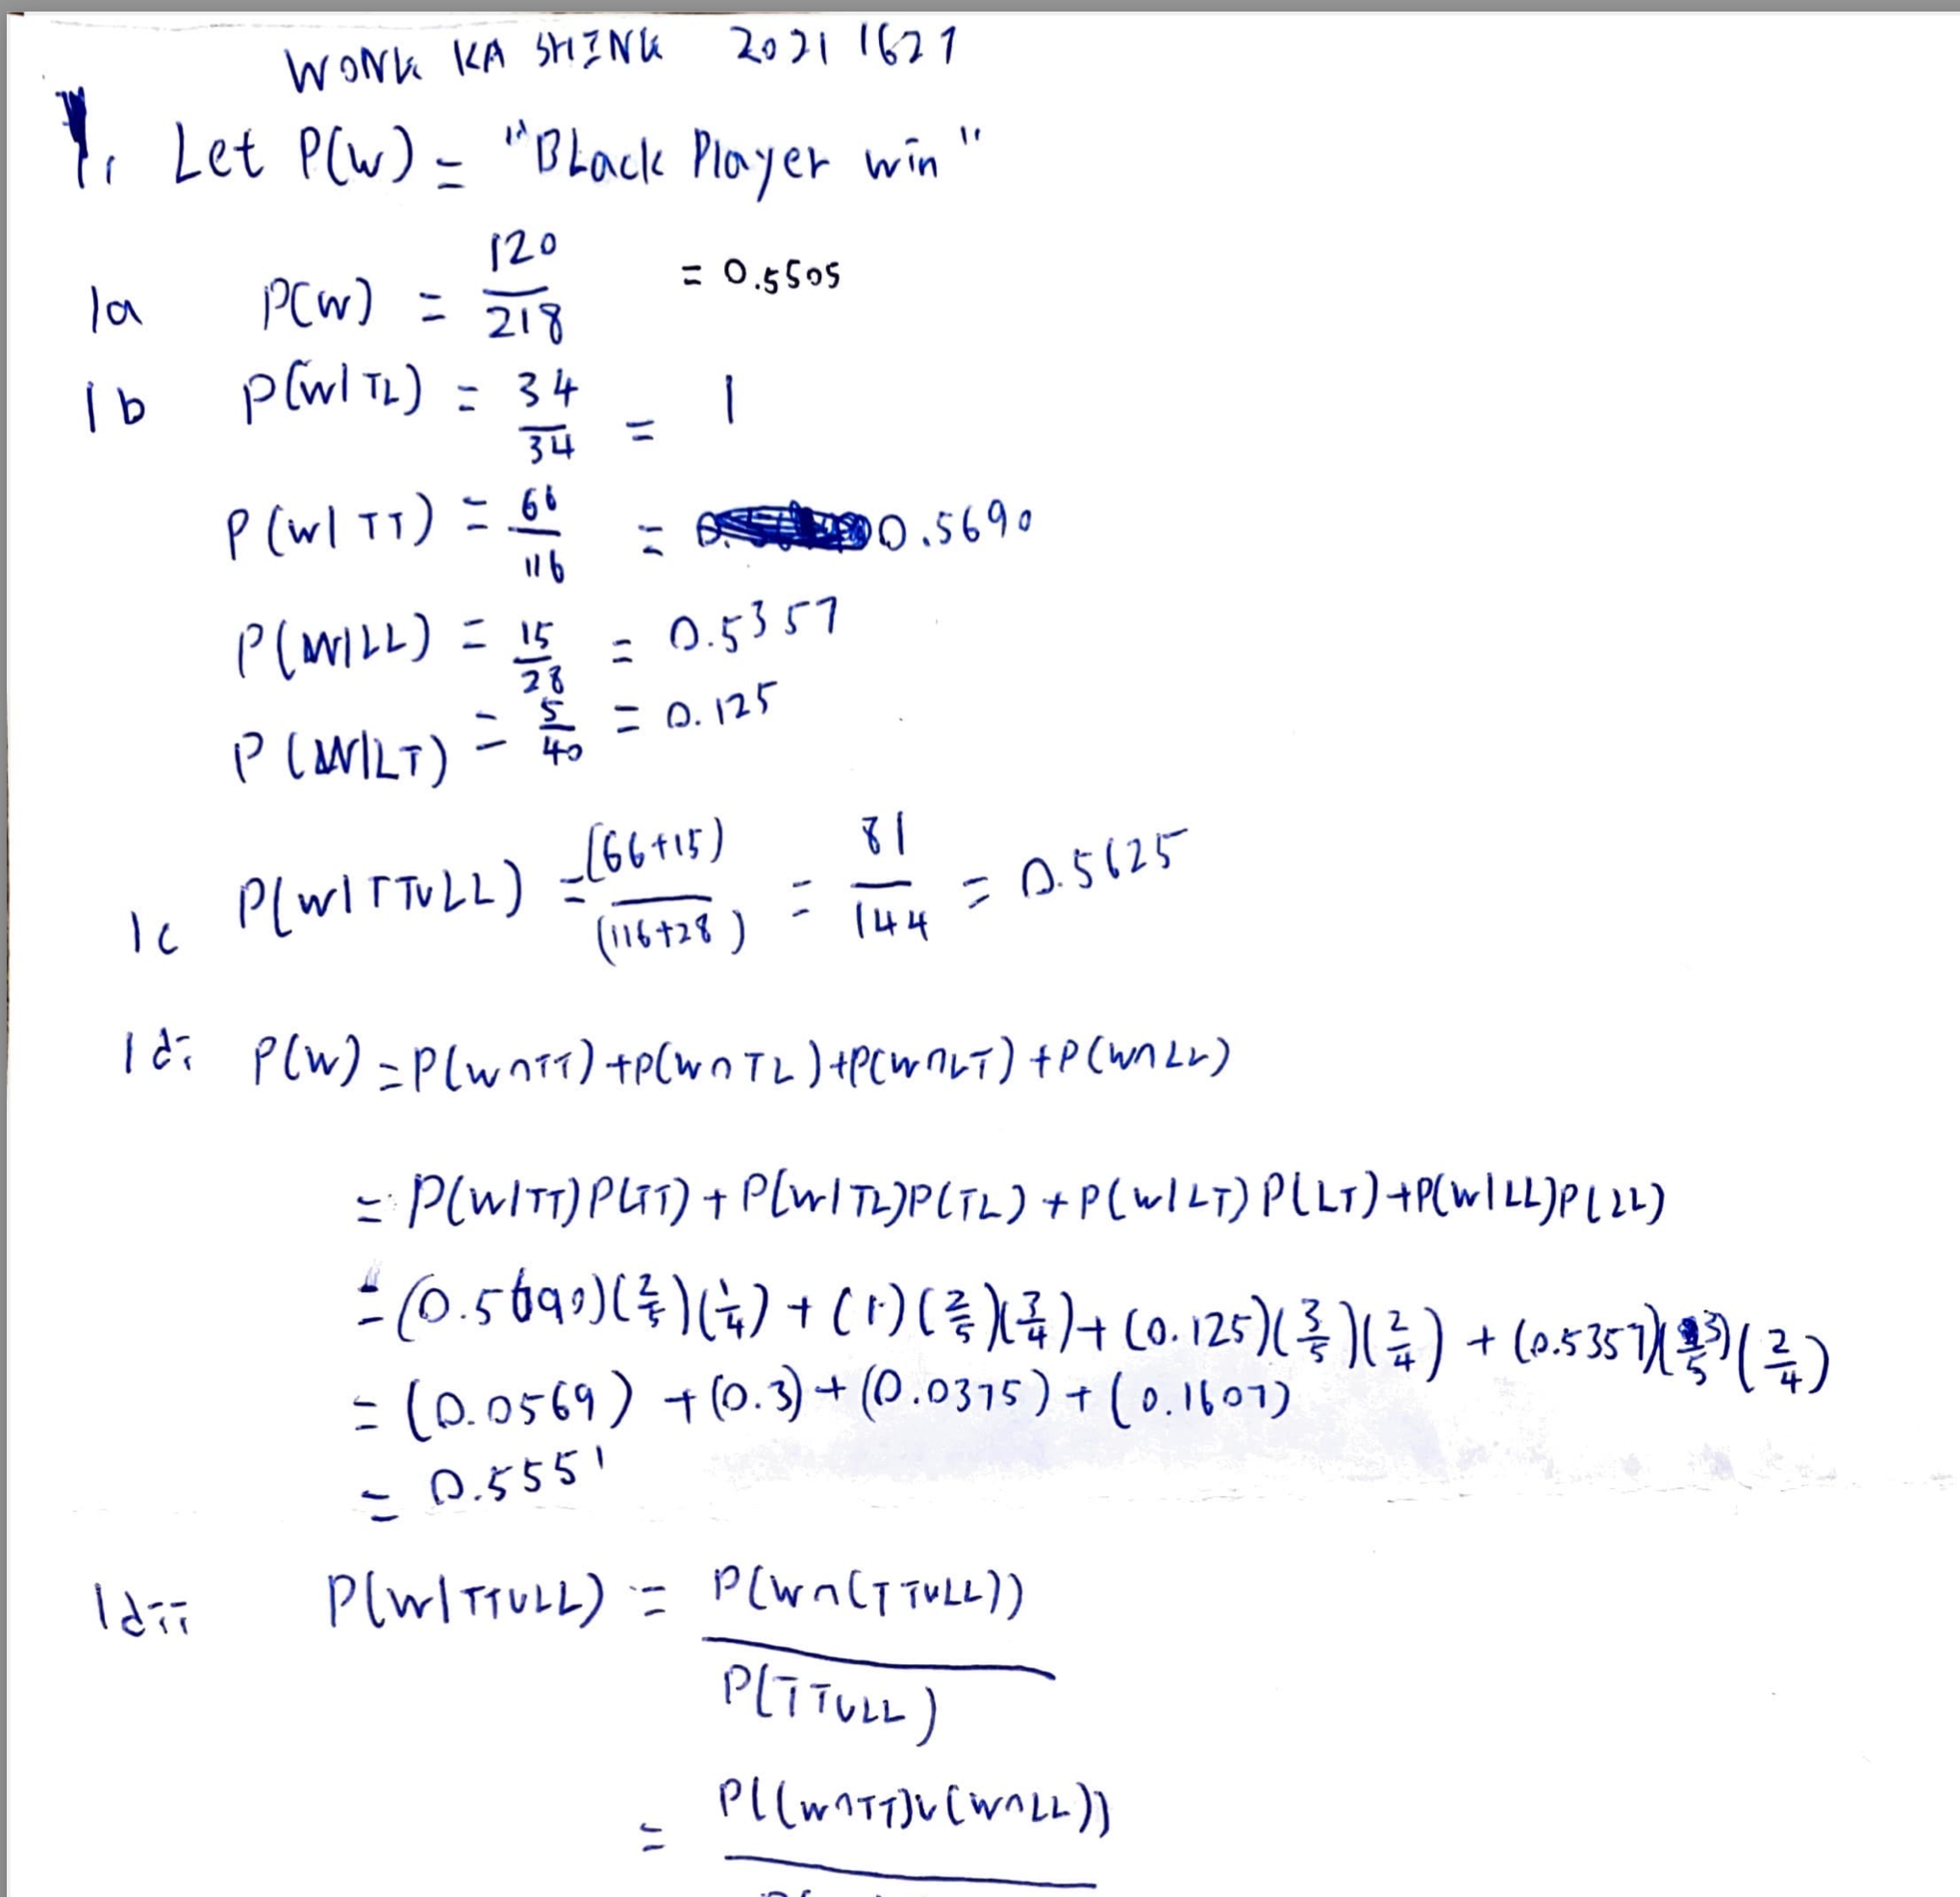 WONG KA SHING 20211627
1. Let P(W) = "Black Player win"
1a P(W) = 120/218 = 0.5505
1b P(W|TL) = 34/34 = 1
P(W|TT) = 66/116 = 0.5690
P(W|LL) = 15/28 = 0.5357
P(W|LT) = 5/40 = 0.125
1c P(W|TTULL) = (66+15)/(116+28) = 81/144 = 0.5625
1di P(W) = P(W∩TT)+P(W∩TL)+P(W∩LT)+P(W∩LL)
= P(W|TT)P(TT) + P(W|TL)P(TL) + P(W|LT)P(LT)+P(W|LL)P(LL)
= (0.5690)(2/5)(1/4) + (1)(2/5)(3/4) + (0.125)(3/5)(2/4) + (0.5357)(3/5)(2/4)
= (0.0569) + (0.3) + (0.0375) + (0.1607)
= 0.5551
1dii P(W|TTULL) = P(W∩(TTULL))/P(TTULL)
= P((W∩TT)U(W∩LL))